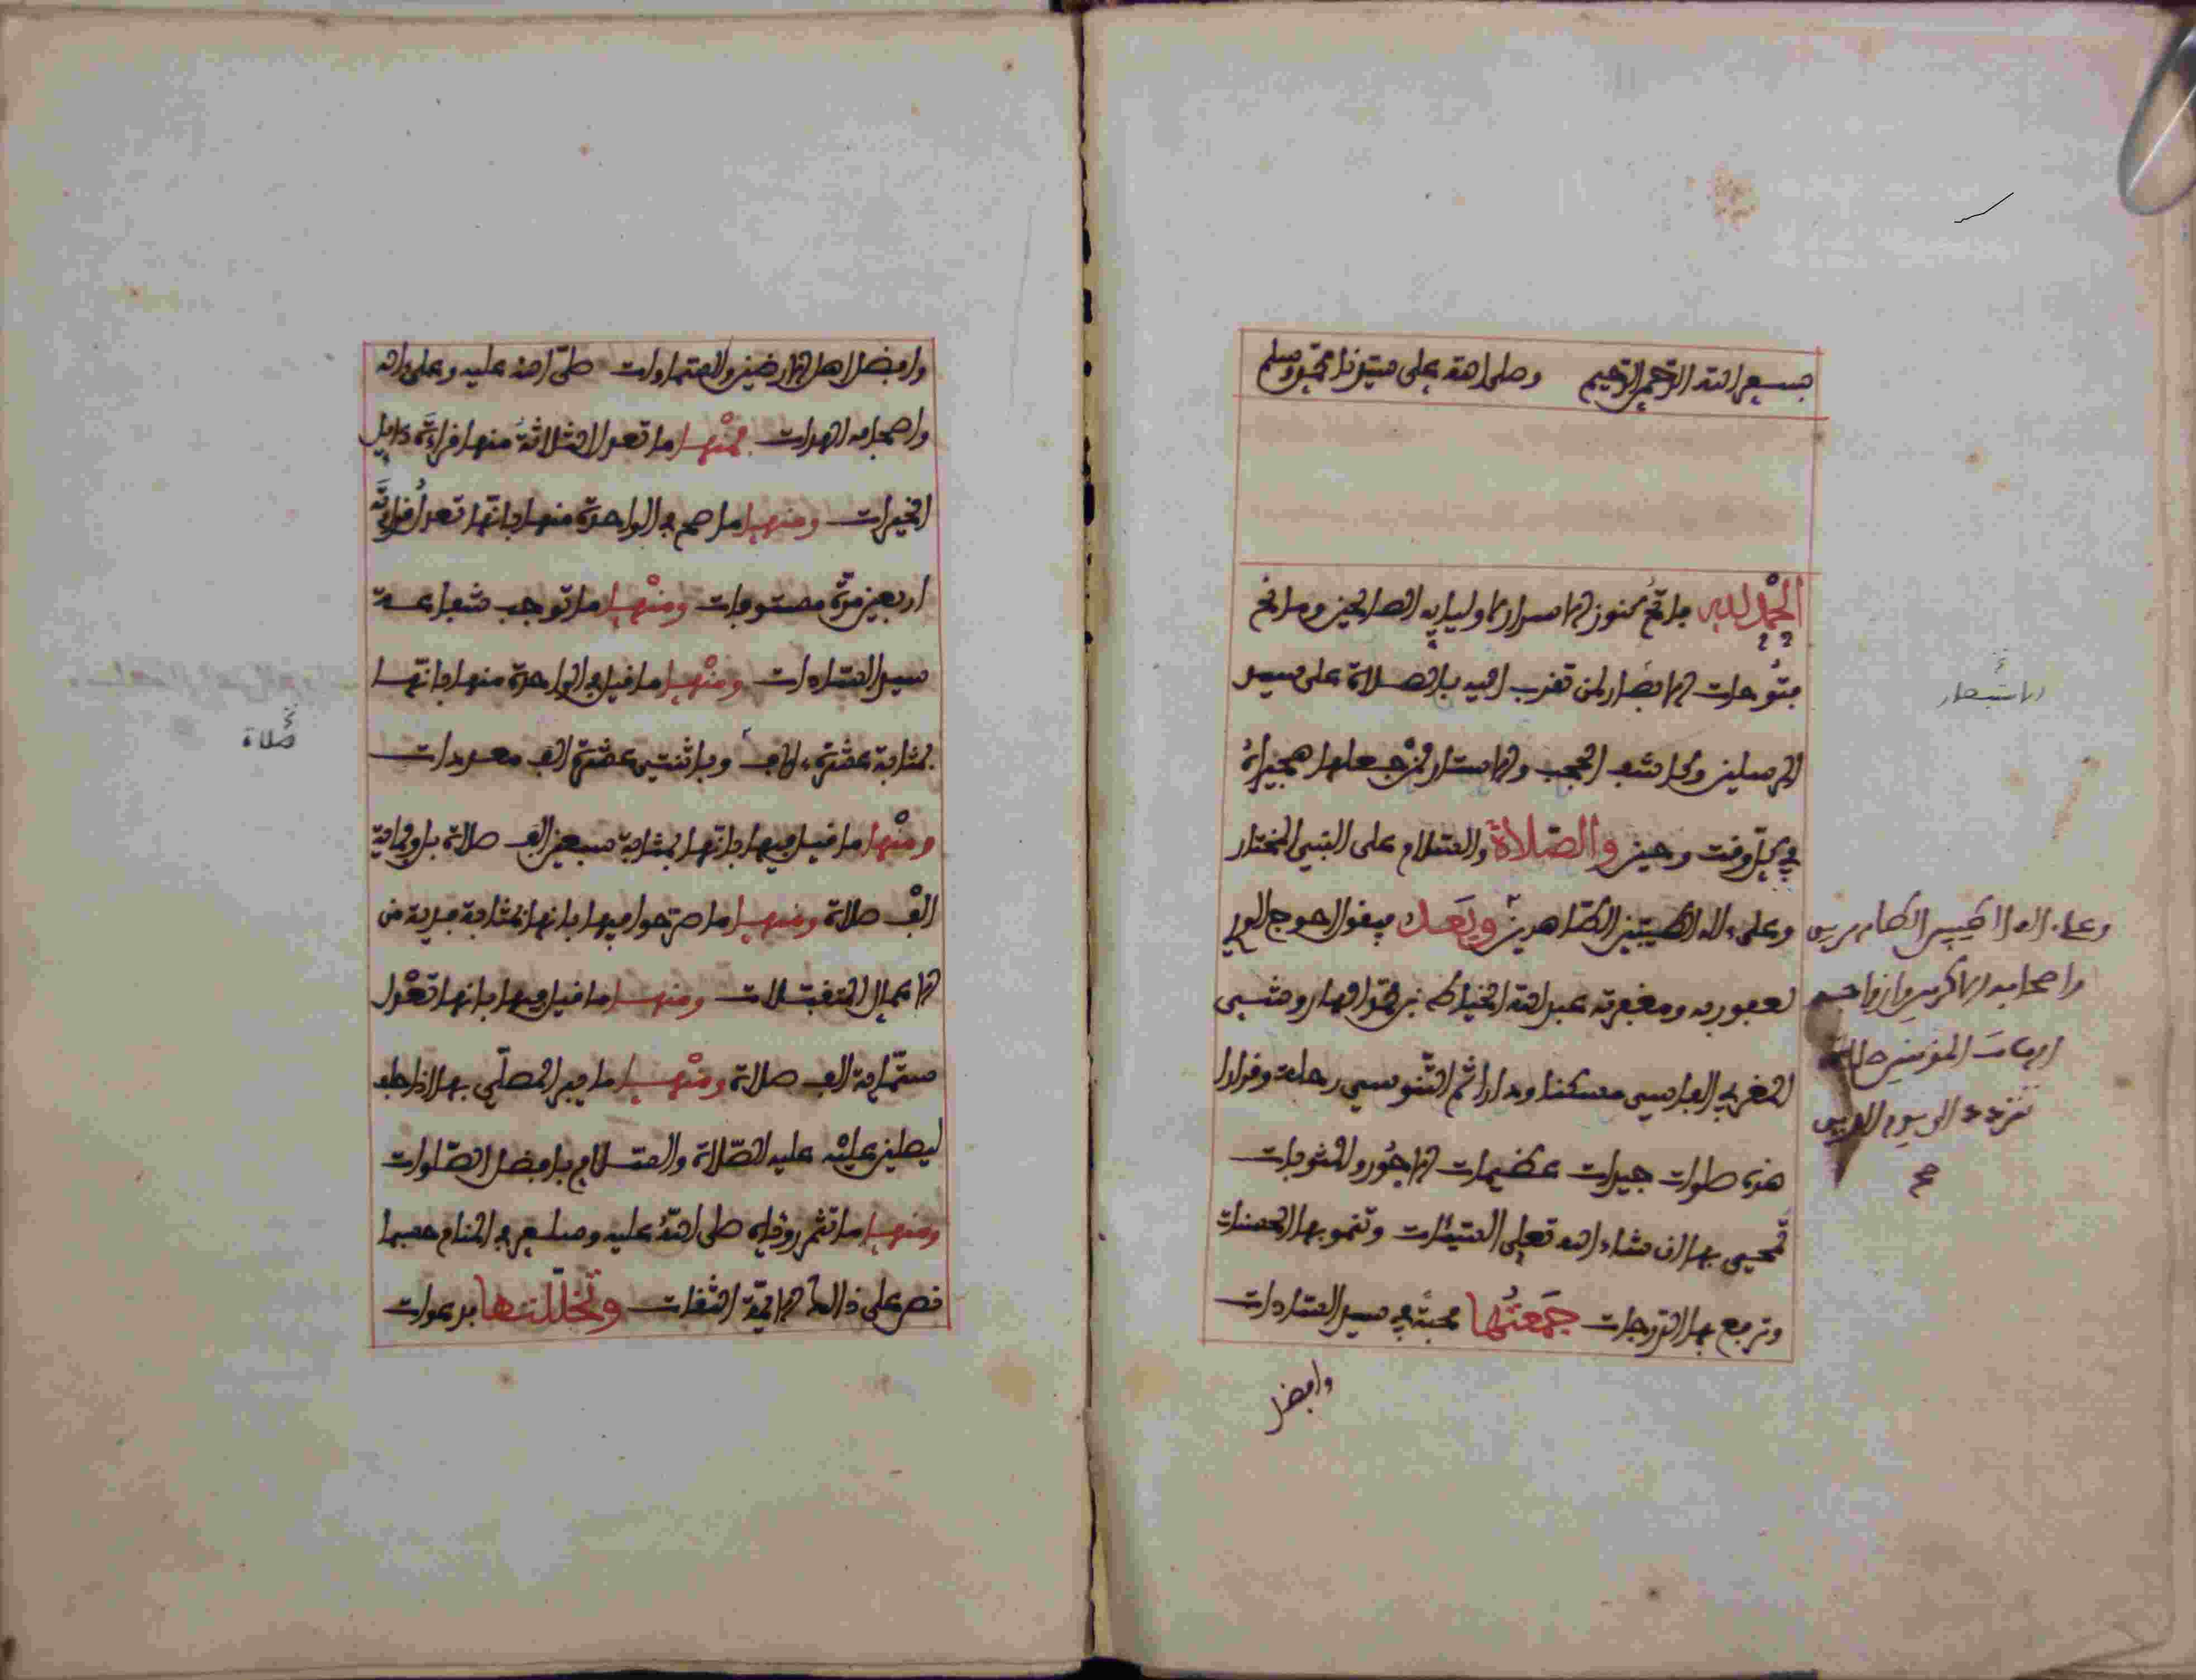 بسم الله الرحمن الرحيم وصلى الله على سيدنا محمد وسلم
الحمد لله فاتح كنوز الاسرار لاوليايه الصالحين ومانح
فتوحات الابصار لمن تقرب اليه بالصلاة على سيد
المرسلين وكاشف الحجب والاستار لمن جعلها هجيراه
في كل وقت وحين والصلاة والسلام على النبي المختار
وعلى ءاله الطيبين الطاهرين وبعد فيقول احوج الورى
لعفو ربه ومغفرته عبد الله الخياط بن محمد الهاروشي
المغربي الفاسي مسكنا ودارا ثم التونسي رحلة وقرارا
هذه صلوات جيدات عظيمات الاجور والمثوبات
تمحيى بها ان شاء الله تعلى السيئات وتنمو بها الحسنات
وترفع بها الدرجات جمعتها محبة في سيد السادات
وافضل
الاستبصار
وعلى اله الطيبين الطاهرين
واصحابه الاكرمين وازواجه
امهات المومنين صلاة
تتردد الى يوم الدين
صح
وافضل اهل الارضين والسماوات صلى الله عليه وعلى ءاله
واصحابه الهداة فمنها ما تعدل الثلاثة منها قراءة دلايل
الخيرات ومنها ما صح في الواحدة منها بانها تعدل قراءته
اربعين مرة مستوفات ومنها ما توجب شفاعة
سيد السادات ومنها ما قيل في الواحدة منها بانها
بمثابة عشرة ءالاف وباثنتي عشرة الف معدودات
ومنها ما قيل فيها بانها بمثابة سبعين الف صلاة بل وبماية
الف صلاة ومنها ما صرحوا فيها بانها بمثابة فدية من
الاعمال المتقبلات ومنها ما قيل فيها بانها تعدل
ستماية الف صلاة ومنها ما يبر المصلي بها اذا حلف
ليصلين عليه عليه الصلاة والسلام بافضل الصلوات
ومنها ما تثمر رؤياه صلى الله عليه وسلم في المنام حسبما
نص على ذالك الايمة الثقات وتخللتها بدعوات
صلاة